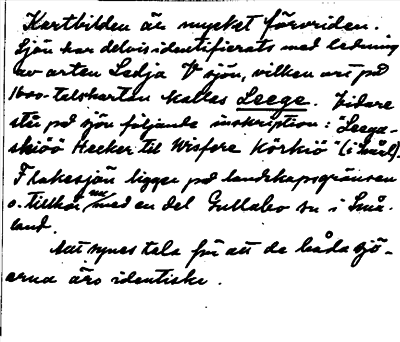 Kartbilden är mycket förvriden.
Sjön har delvis identifierats med ledning
av orten Ledja V sjön, vilken ort på
1600-talskartan kalles Leege. Vidare
står på sjön följande inskription: "Leega-
skiöö Hecker til Wisfore Körkiö" (i Smål).
Flakesjön ligger på landskapsgränsen
o. tillhör nu med en del Gullabo sn i Små-
land.
Allt synes tala för att de båda sjö-
arna äro identiska.